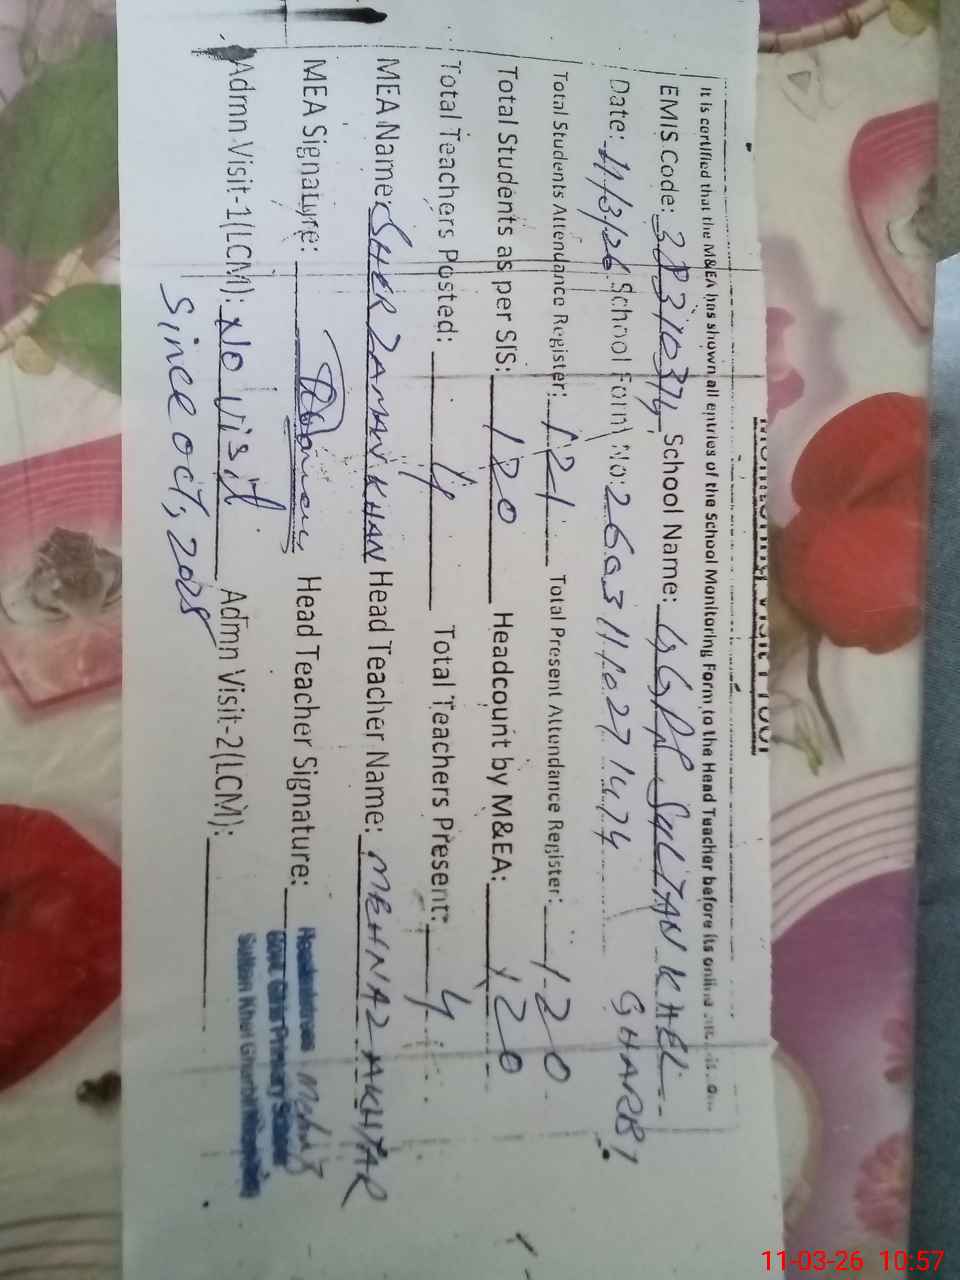 Monitoring Visit Proof
It is certified that the M&EA has shown all entries of the School Monitoring Form to the Head Teacher before its online
EMIS Code: 38310374 School Name: GGPS SULTAN KHEL
GHARBI
Date: 11/3/26 School Form No: 26031110271474
Total Students Attendance Register: 121 Total Present Attendance Register: 120
Total Students as per SIS: 120 Headcount by M&EA: 120
Total Teachers Posted: 4 Total Teachers Present: 4
MEA Name: SHER ZAMAN KHAN Head Teacher Name: MEHNAZ AKHTAR
MEA Signature: Head Teacher Signature:
Headmistress
Govt Girls Primary School
Sultan Khel Gharbi
Admn Visit-1(LCM): No visit Admn Visit-2(LCM):
since oct, 2025
11-03-26 10:57